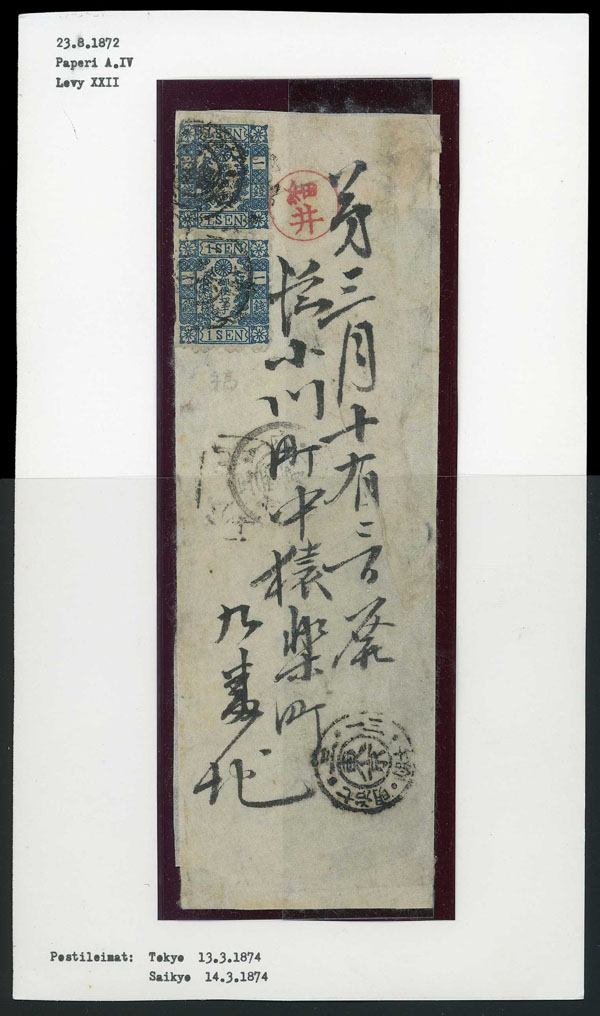 23.8.1872
Paperi A.IV
Levy XXII
1 SEN
1 SEN
1 SEN
1 SEN
細井
第三月十有三日発
小川町中猿楽町
九番地
東京
明治七
Postileimat: Tokyo 13.3.1874
Saikyo 14.3.1874